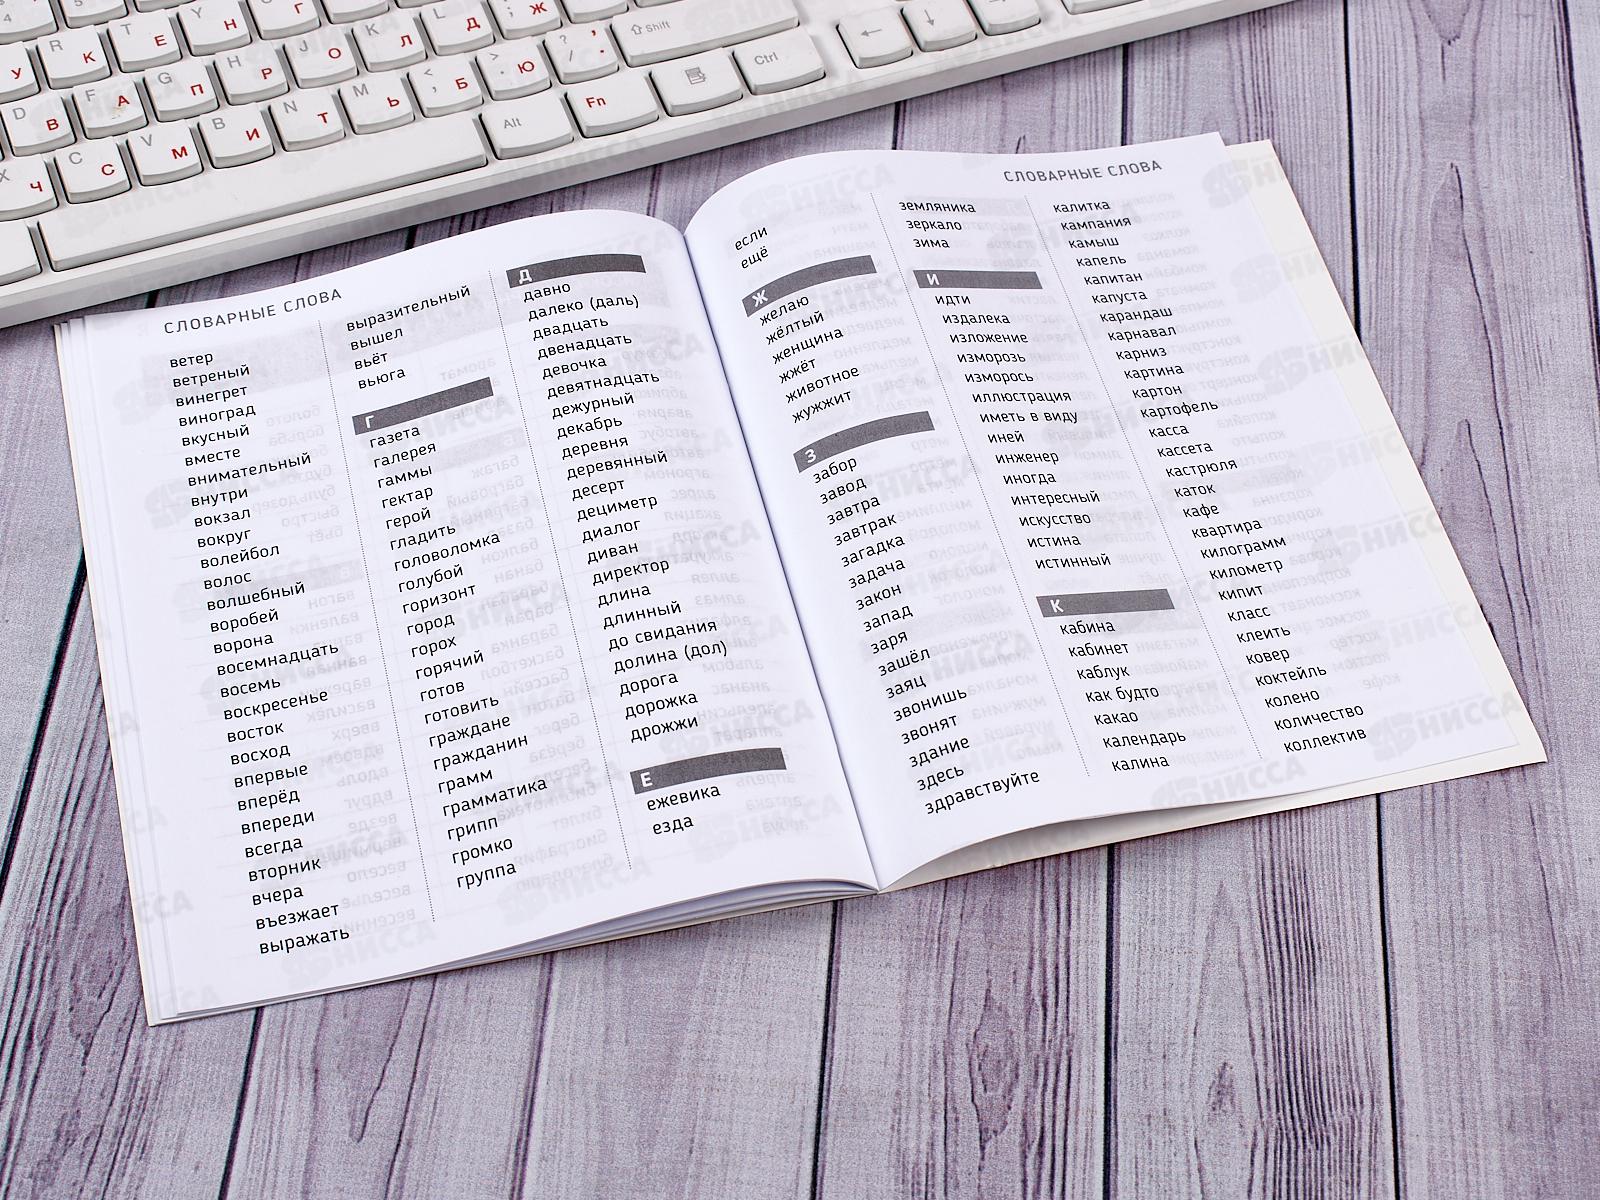 СЛОВАРНЫЕ СЛОВА
ветер
ветреный
винегрет
виноград
вкусный
вместе
внимательный
внутри
вокзал
вокруг
волейбол
волос
волшебный
воробей
ворона
восемнадцать
восемь
воскресенье
восток
восход
впервые
вперёд
впереди
всегда
вторник
вчера
въезжает
выражать
выразительный
вышел
вьёт
вьюга
Г
газета
галерея
гаммы
гектар
герой
гладить
головоломка
голубой
горизонт
город
горох
горячий
готов
готовить
граждане
гражданин
грамм
грамматика
грипп
громко
группа
Д
давно
далеко (даль)
двадцать
двенадцать
девочка
девятнадцать
дежурный
декабрь
деревня
деревянный
десерт
дециметр
диалог
диван
директор
длина
длинный
до свидания
долина (дол)
дорога
дорожка
дрожжи
Е
ежевика
езда
СЛОВАРНЫЕ СЛОВА
если
ещё
Ж
желаю
жёлтый
женщина
жжёт
животное
жужжит
З
забор
завод
завтра
завтрак
загадка
задача
закон
запад
заря
зашёл
заяц
звонишь
звонят
здание
здесь
здравствуйте
земляника
зеркало
зима
И
идти
издалека
изложение
изморозь
изморось
иллюстрация
иметь в виду
иней
инженер
иногда
интересный
искусство
истина
истинный
К
кабина
кабинет
каблук
как будто
какао
календарь
калина
калитка
кампания
камыш
капель
капитан
капуста
карандаш
карнавал
карниз
картина
картон
картофель
касса
кассета
кастрюля
каток
кафе
квартира
килограмм
километр
кипит
класс
клеить
ковер
коктейль
колено
количество
коллектив
Shift
Ctrl
Alt
Fn
НИССА